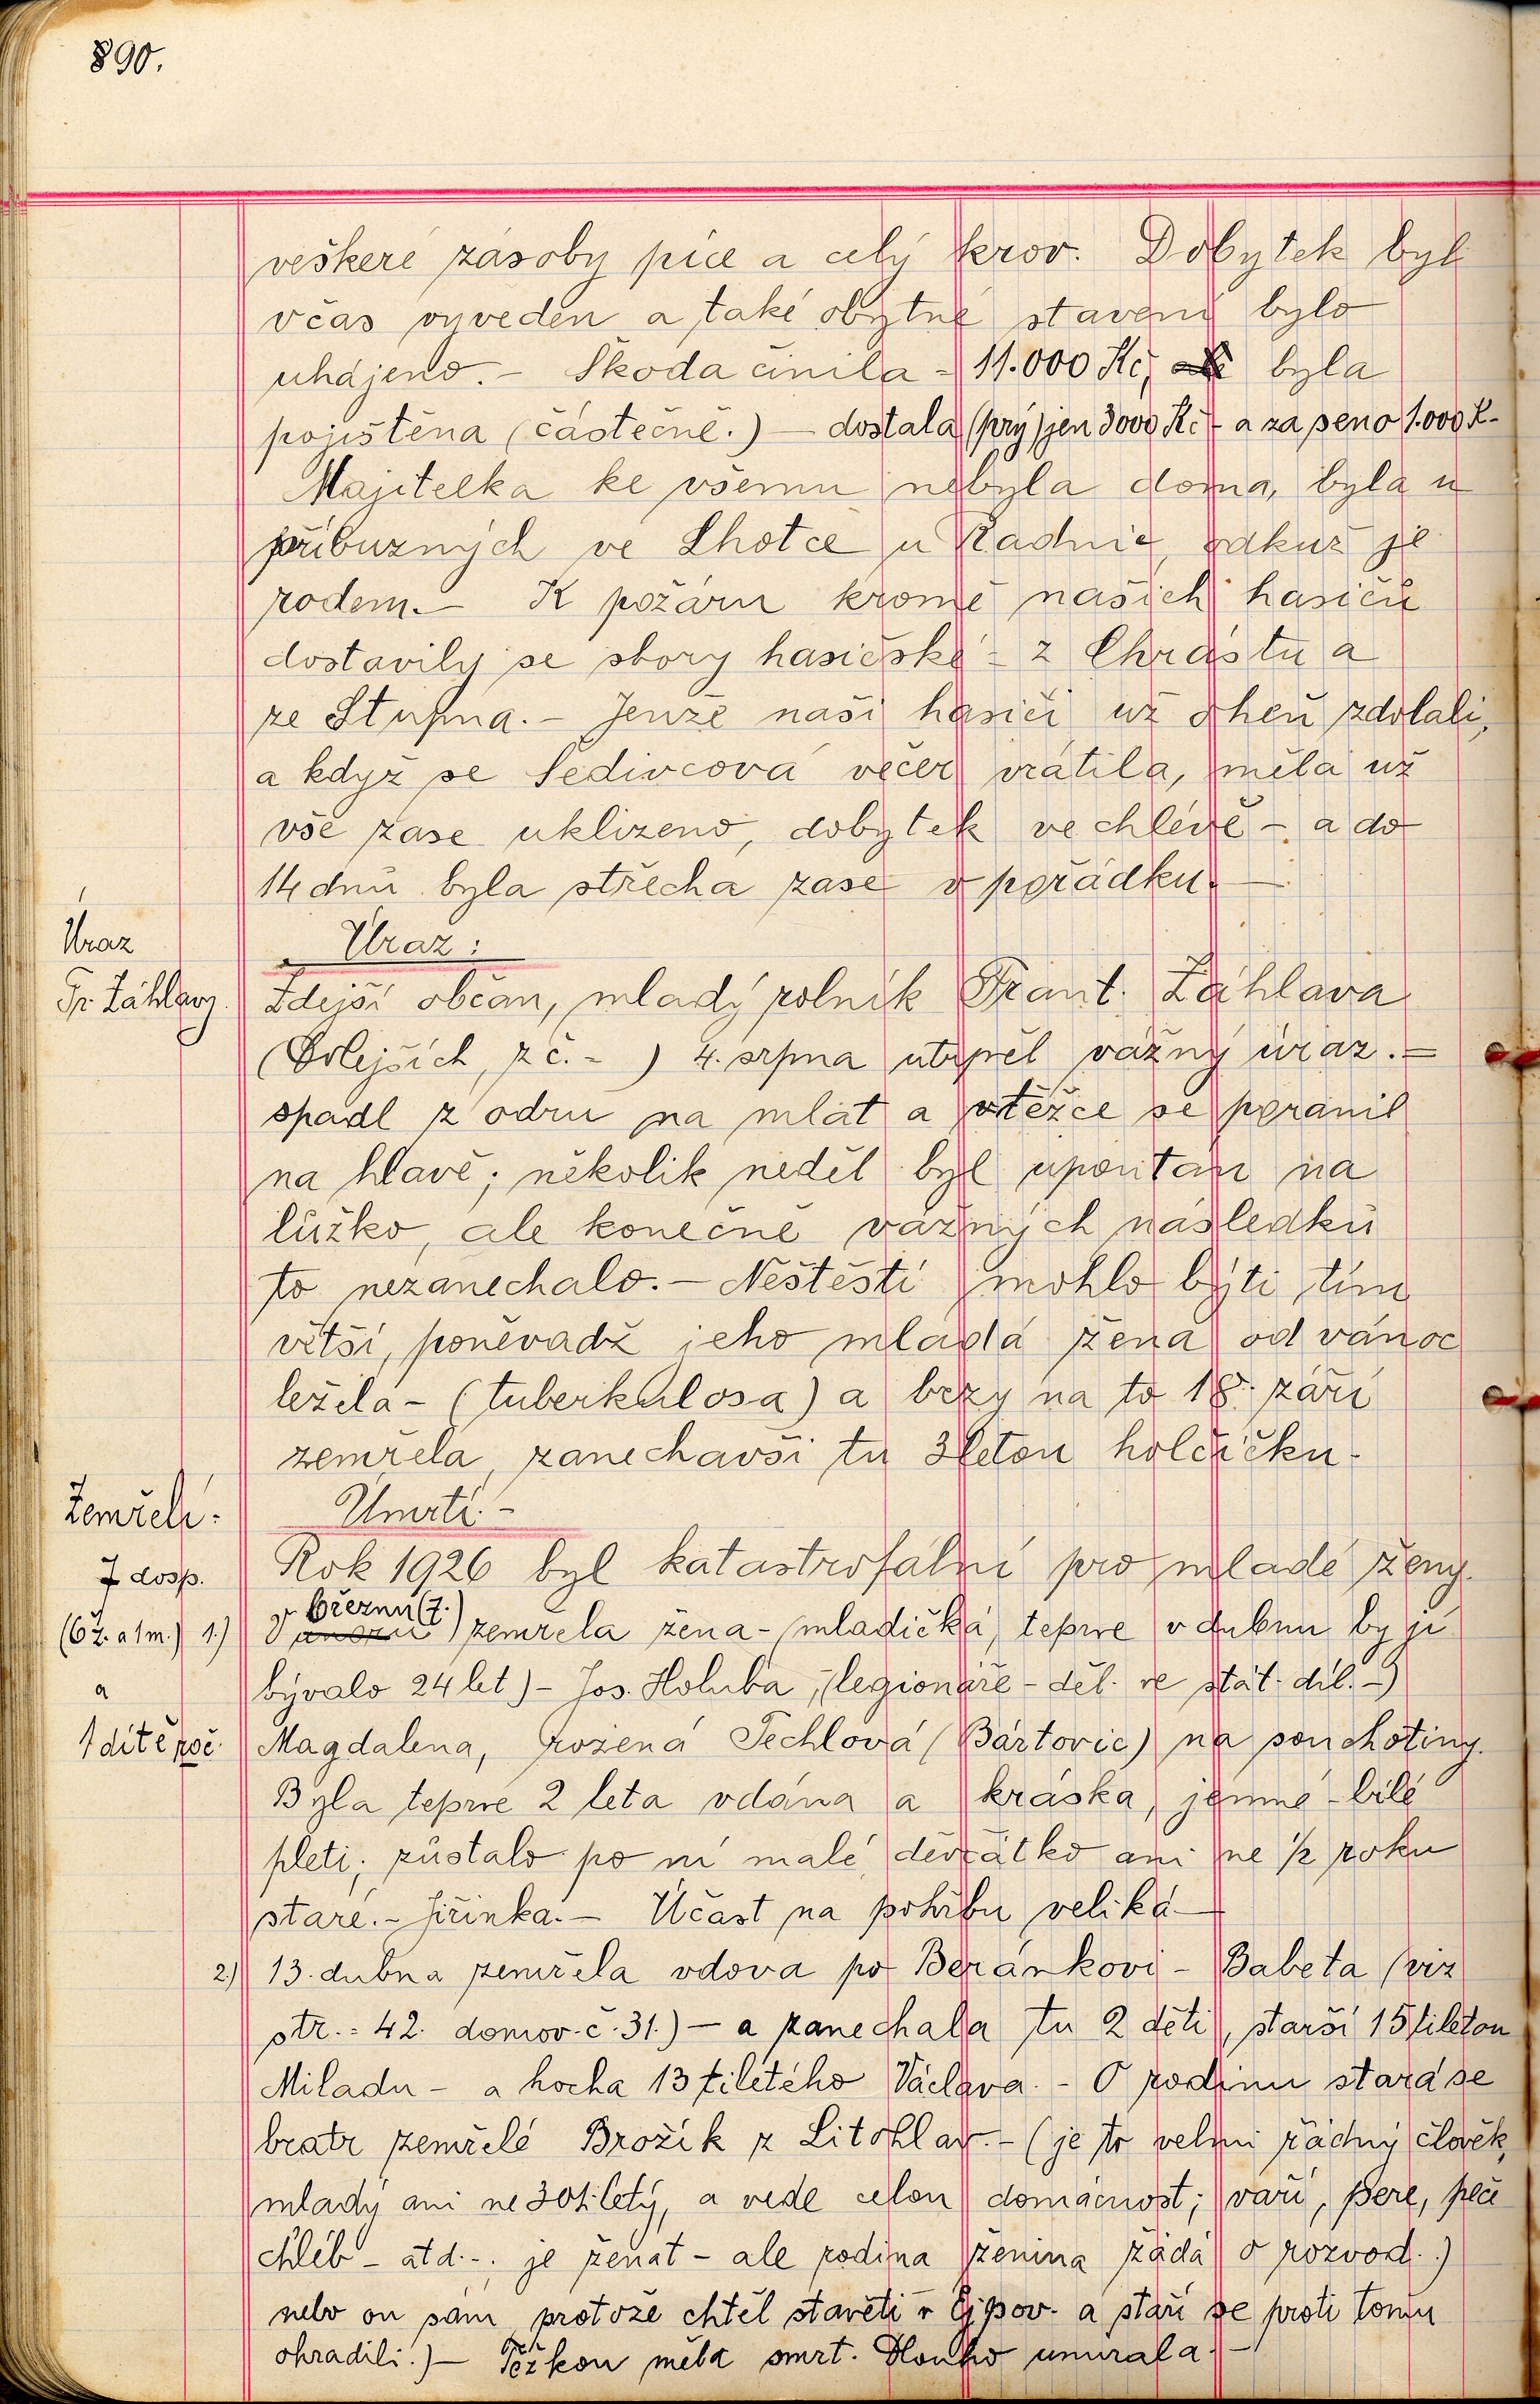 890.
veškeré zásoby píce a celý krov. Dobytek byl
včas vyveden a také obytné stavení bylo
uhájeno. – Škoda činila – 11.000 Kč, byla
pojištěna (částečně.) – dostala (prý) jen 3000 Kč – a za seno 1.000 K–
Majitelka ke všemu nebyla doma, byla u
příbuzných ve Lhotce u Radnic, odkuž je
rodem. – K požáru kromě našich hasičů
dostavily se sbory hasičské – z Chrástu a
ze Stupna. – Jenže naši hasiči už oheň zdolali,
a když se Šedivcová večer vrátila, měla už
vše zase uklizeno, dobytek ve chlévě – a do
14 dnů byla střecha zase v pořádku. –
Úraz
Fr. Záhlavy.
Úraz:
Zdejší občan, mladý rolník Frant. Záhlava
(Dolejších, z č. – ) 4. srpna utrpěl vážný úraz. =
spadl z odru na mlat a těžce se poranil
na hlavě; několik neděl byl upoután na
lůžko, ale konečně vážných následků
to nezanechalo. – Neštěstí mohlo býti tím
větší, poněvadž jeho mladá žena od vánoc
ležela – (tuberkulosa) a brzy na to 18. září
zemřela, zanechavši tu 3letou holčičku. –
Zemřelí:
7 dosp.
(6 ž. a 1 m.)
a
1 dítě roč.
Úmrtí. –
Rok 1926 byl katastrofální pro mladé ženy.
1.) V únoru v březnu (7.) zemřela žena – (mladičká, teprve v dubnu by jí
bývalo 24 let) – Jos. Holuba, (legionáře – děl. ve stát. díl. –)
Magdalena, rozená Техlová (Bártovic) na souchotiny.
Byla teprve 2 léta vdána a kráska, jemné – bílé
pleti; zůstalo po ní malé děvčátko ani ne ½ roku
staré. – Jiřinka. – Účast na pohřbu veliká –
2.) 13. dubna zemřela vdova po Beránkovi – Babeta (viz
str. = 42. domov. č. 31.) – a zanechala tu 2 děti, starší 15tiletou
Miladu – a hocha 13tiletého Václava. – O rodinu stará se
bratr zemřelé Brožík z Litohlav. – (je to velmi řádný člověk,
mladý ani ne 30tiletý, a vede celou domácnost; vaří, pere, peče
chléb – atd. –; je ženat – ale rodina ženina žádá o rozvod.)
nebo on sám, protože chtěl stavěti v Ejpov. a staří se proti tomu
ohradili.) – Těžkou měla smrt. Dlouho umírala. –